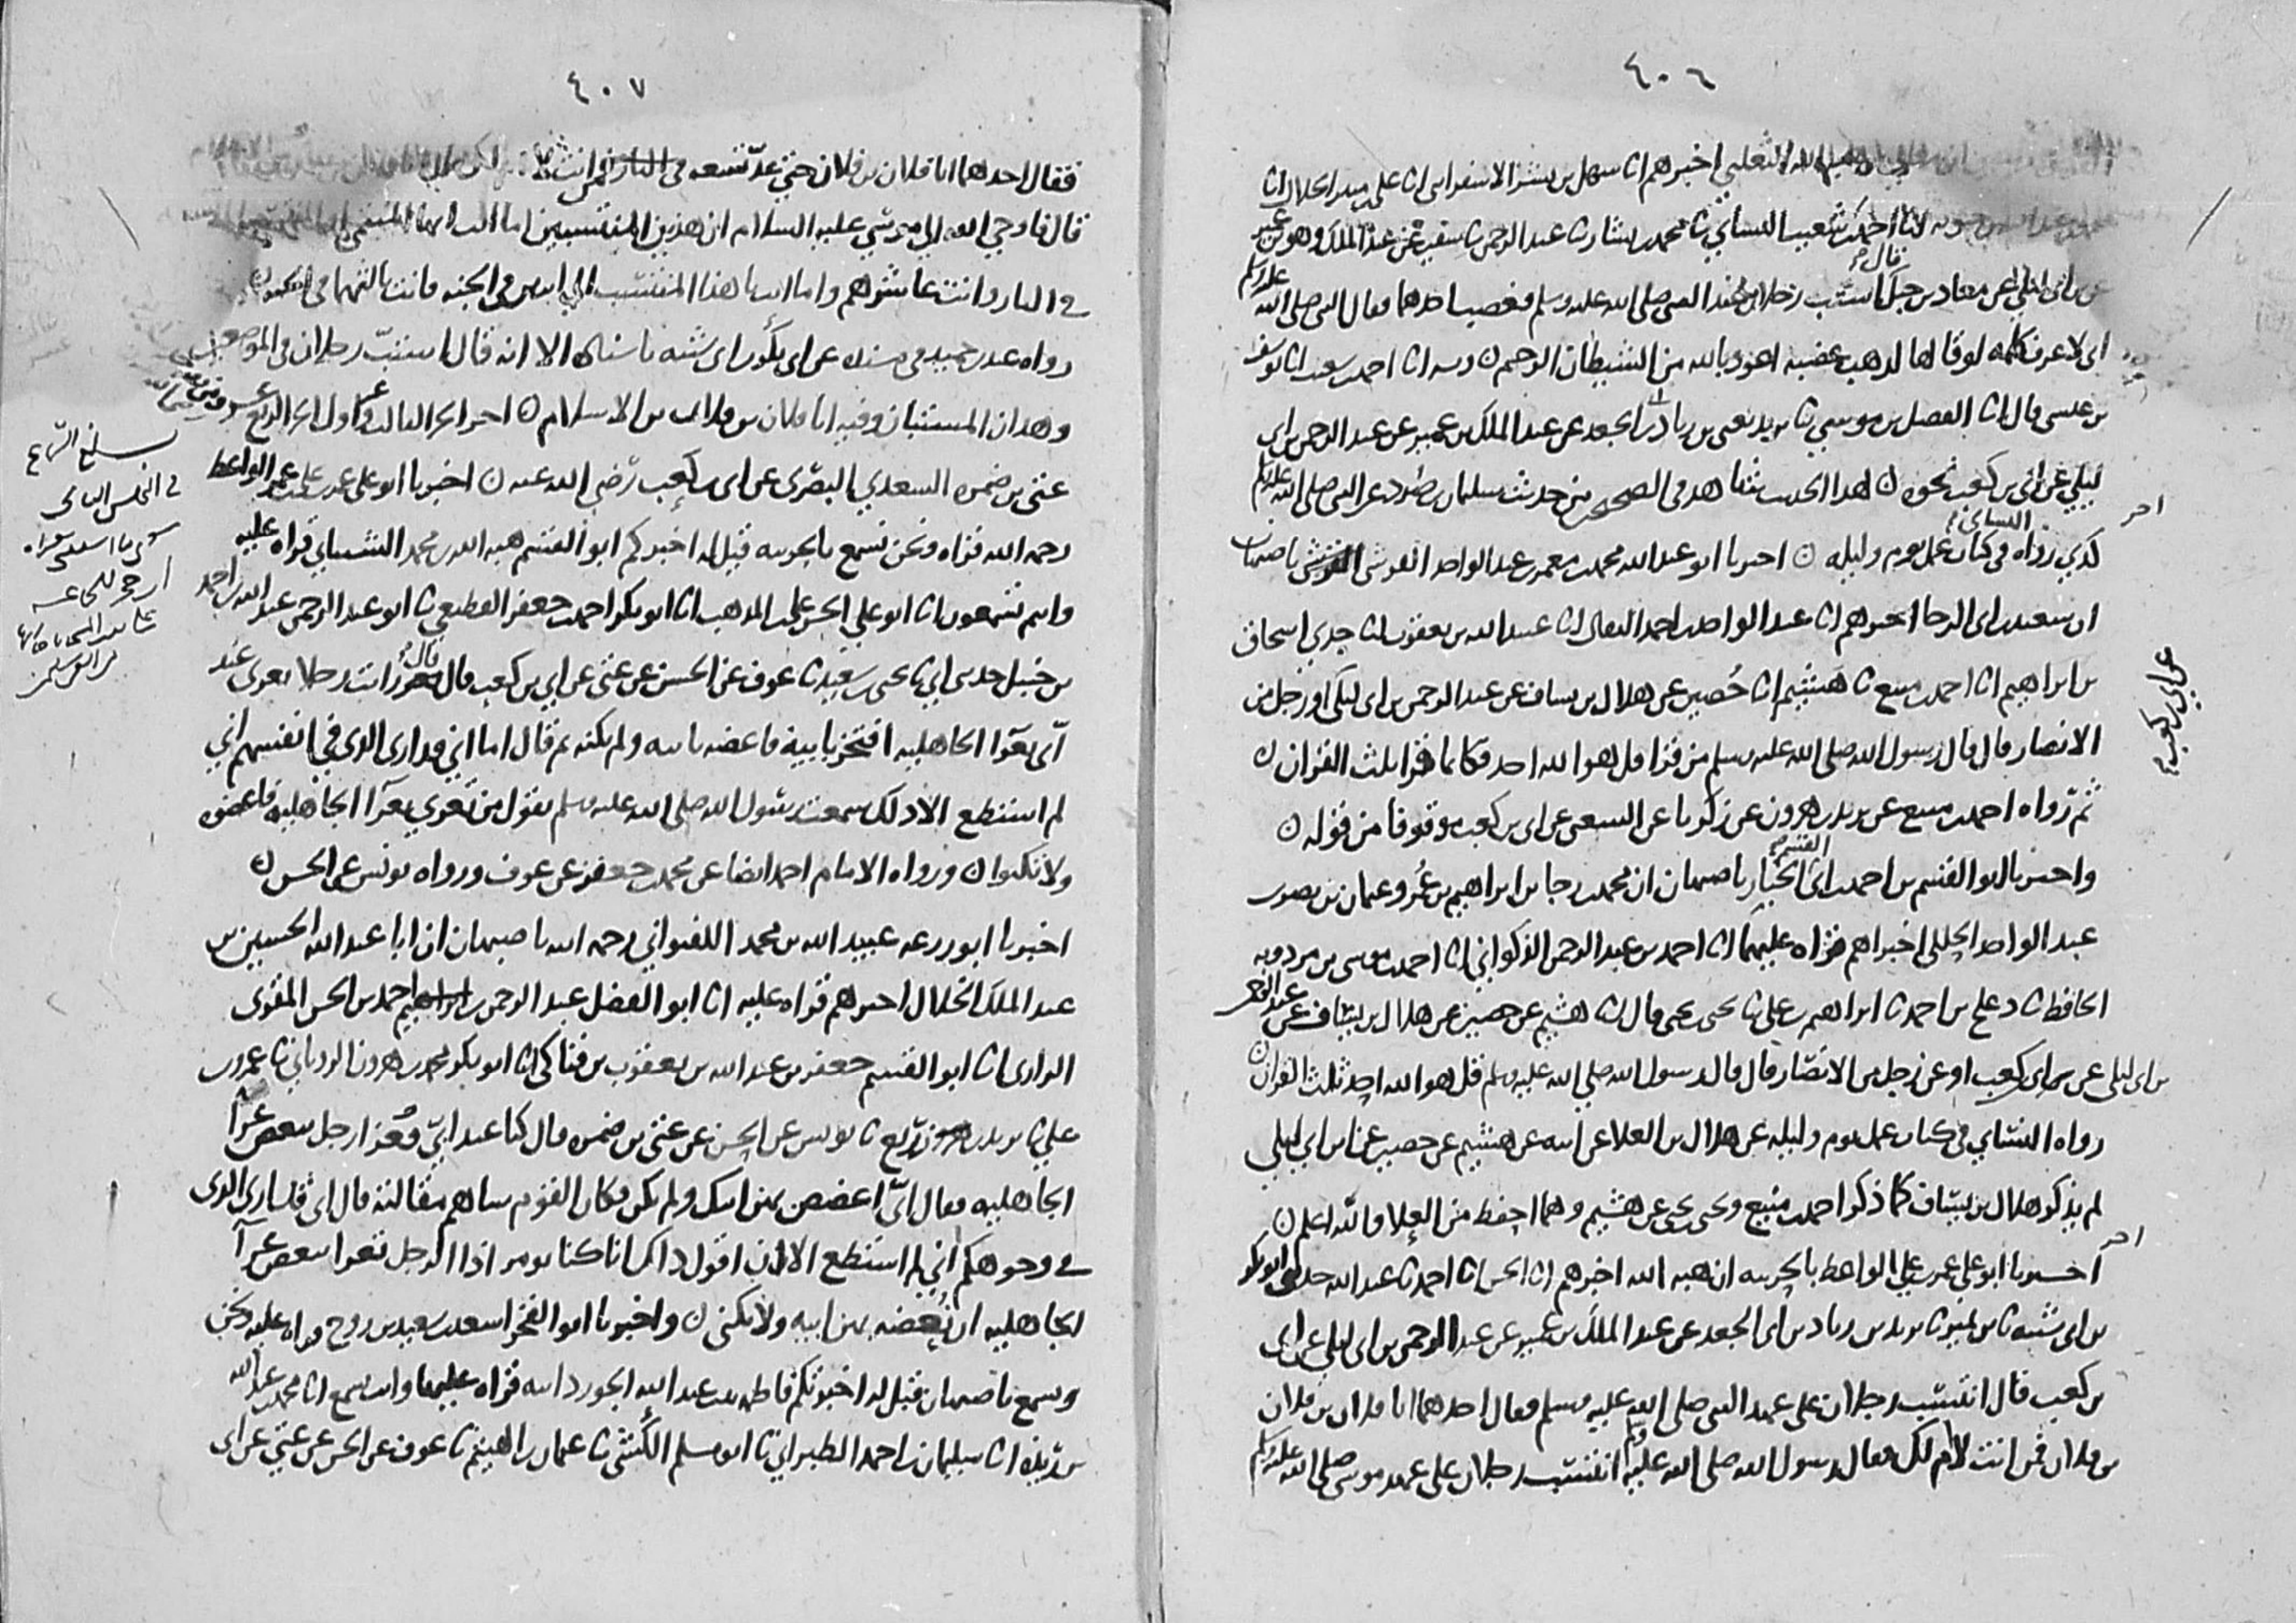 ٤٠٦
الثعلبي اخبرهم انا سهل بن بشر الاسفرايني انا علي بن منير الخلال انا
انا احمد بن شعيب النسائي ثنا محمد بن بشار ثنا عبد الرحمن ثنا سفين عن عبد الملك وهو بن عمير
عن ابن ابي ليلى عن معاذ بن جبل قال استب رجلان عند النبي صلى الله عليه وسلم فغضب احدهما فقال النبي صلى الله عليه وسلم
اني لاعرف كلمه لو قالها لذهب غضبه اعوذ بالله من الشيطان الرجيم ن وبه انا احمد بن شعيب انا يوسف
بن عيسى قال انا الفضل بن موسى ثنا يزيد يعني بن زياد بن ابي الجعد عن عبد الملك بن عمير عن عبد الرحمن بن ابي
ليلى عن ابي بن كعب نحوه ن لهذا الحديث شاهد في الصحيح من حديث سليمان بن صرد عن النبي صلى الله عليه وسلم
كذي رواه النسائي في كتاب عمل يوم وليله ن اخبرنا ابو عبد الله محمد بن معمر بن عبد الواحد القرشي باصبهان
اخر
ان سعيد بن ابي الرجا اخبرهم انا عبد الواحد بن احمد البقال انا عبيد الله بن يعقوب انا جدي اسحاق
بن ابراهيم انا احمد بن منيع ثنا هشيم انا حصين عن هلال بن يساف عن عبد الرحمن بن ابي ليلى او رجل من
عن ابي بن كعب
الانصار قال قال رسول الله صلى الله عليه وسلم من قرا قل هو الله احد فكانما قرا بثلث القران ن
ثم رواه احمد بن منيع عن يزيد بن هرون عن زكريا عن الشعبي عن ابي بن كعب موقوفا من قوله ن
واخبرنا ابو القسم بن احمد بن ابي القسم الخباز باصبهان ان محمد بن رجا بن ابراهيم بن عمر وعمان بن
عبد الواحد اخبراهم قراه عليهما انا احمد بن عبد الرحمن الذكواني انا احمد بن موسى بن مردويه
الحافظ ثنا دعلج بن احمد ثنا ابراهيم بن علي ثنا يحيى بن يحيى قال انا هشيم عن حصين عن هلال بن يساف عن عبد الرحمن
بن ابي ليلى عن ابي بن كعب او عن رجل من الانصار قال قال رسول الله صلى الله عليه وسلم قل هو الله احد ثلث القران ن
رواه النسائي في كتاب عمل يوم وليله عن هلال بن العلا عن ابيه عن هشيم عن حصين عن ابن ابي ليلى
لم يذكر هلال بن يساف كما ذكر احمد بن منيع ويحيى بن يحيى عن هشيم وهما احفظ من العلا والله اعلم ن
اخر
اخبرنا ابو علي عمر بن علي الواعظ بالحربيه ان هبه الله اخبرهم انا الحسن انا احمد ثنا عبد الله حدثني ابو بكر
بن ابي شيبه ثنا بن نمير ثنا يزيد بن زياد بن ابي الجعد عن عبد الملك بن عمير عن عبد الرحمن بن ابي ليلى عن ابي
بن كعب قال انتسب رجلان على عهد النبي صلى الله عليه وسلم فقال احدهما انا فلان بن فلان
بن فلان فمن انت لا ام لك فقال رسول الله صلى الله عليه وسلم انتسب رجلان على عهد موسى صلى الله عليه وسلم
٤٠٧
فقال احدهما انا فلان بن فلان حتى عد تسعه فمن انت
قال فاوحي الله الي موسي عليه السلام ان هذين المنتسبين اما انت ايها المنتمي
في النار وانت عاشرهم واما انت يا هذا المنتسب الي اثنين في الجنه فانت ثالثهما في الجنه ن
رواه عبد بن حميد في مسنده عن ابي بكر بن ابي شيبه باسناده الا انه قال استب رجلان في الموضعين
وهذان المستبان وفيه انا فلان بن فلان بن الاسلام ن اخر الجزء الثالث واول الجزء الرابع
عتي بن ضمره السعدي البصري عن ابي بن كعب رضي الله عنه ن اخبرنا ابو علي عمر بن علي بن عمر الواعظ
رحمه الله قراه ونحن نسمع بالحربيه قيل له اخبركم ابو القسم هبه الله بن محمد الشيباني قراه عليه
وانتم تسمعون انا ابو علي الحسن بن علي بن المذهب انا ابو بكر احمد بن جعفر القطيعي ثنا ابو عبد الرحمن عبد الله بن احمد
بن حنبل حدثني ابي ثنا يحيى بن سعيد ثنا عوف عن الحسن عن عتي عن ابي بن كعب قال رايت رجلا تعزى عند
ابي بعزا الجاهليه افتخر بابيه فاعضه بابيه ولم يكنه ثم قال اما اني قد ارى الذي في انفسكم اني
لم استطع الا ذلك سمعت رسول الله صلى الله عليه وسلم يقول من تعزي بعزا الجاهليه فاعضوه
ولا تكنوا ن ورواه الامام احمد ايضا عن محمد بن جعفر عن عوف ورواه يونس عن الحسن ن
اخبرنا ابو زرعه عبيد الله بن محمد اللفتواني رحمه الله باصبهان ان ابا عبد الله الحسين بن
عبد الملك الخلال اخبرهم قراه عليه انا ابو الفضل عبد الرحمن بن احمد بن الحسن المقري
الرازي انا ابو القسم جعفر بن عبد الله بن يعقوب بن فناكي انا ابو بكر محمد بن هرون الروياني ثنا عمرو بن
علي ثنا يزيد بن زريع ثنا يونس عن الحسن عن عتي بن ضمره قال كنا عند ابي فتعزا رجل بعض عزا
الجاهليه فقال ابي اعضض بهن ابيك ولم يكن فكان القوم ساهم مقالته قال اني قد ارى الذي
في وجوهكم اني لم استطع الا ان اقول ذاك انا كنا نومر اذا الرجل تعزا بعض عزا
الجاهليه ان نعضه بهن ابيه ولا نكني ن واخبرنا ابو الفخر اسعد بن سعيد بن روح قراه عليه ونحن
نسمع باصبهان قيل له اخبرتكم فاطمه بنت عبد الله الجوزدانيه قراه عليها وانت تسمع انا محمد بن عبد الله
بن ريذه انا سليمان بن احمد الطبراني ثنا ابو مسلم الكشي ثنا عثمان بن الهيثم ثنا عوف عن الحسن عن عتي عن ابي